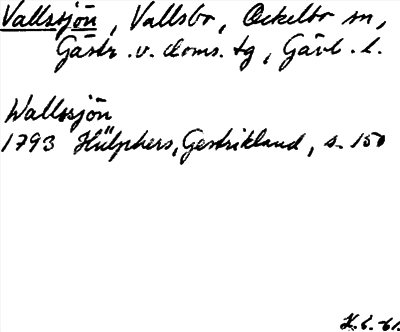 Vallssjön, Vallsbo, Ockelbo sn,
Gästr. v. doms. tg, Gävl. l.
Wallssjön
1793 Hülphers, Gestrikland, s. 150